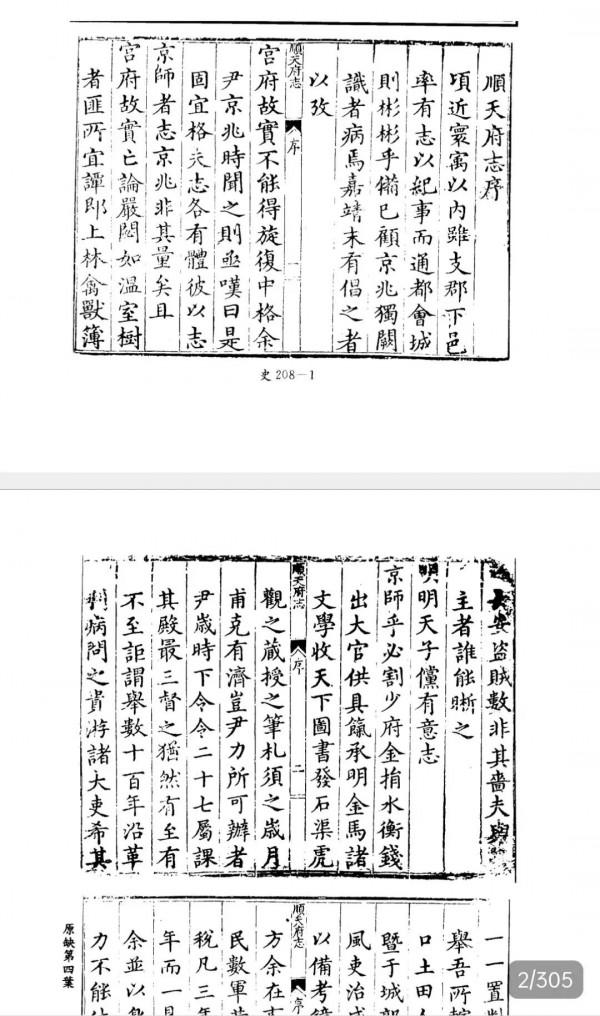 順天府志序
頃近寰寓以內雖支郡下邑
率有志以紀事而通都會城
則彬彬乎備已顧京兆獨闕
識者病焉嘉靖末有倡之者
以攷
順天府志
序
一
宮府故實不能得旋復中格余
尹京兆時聞之則亟嘆曰是
固宜格夫志各有體彼以志
京師者志京兆非其量矣且
宮府故實亡論嚴閟如溫室樹
者匪所宜譚即上林禽獸簿
史 208—1
長安盜賊數非其嗇夫與
主者誰能晰之
明明天子儻有意志
京師乎必割少府金捐水衡錢
出大官供具餼承明金馬諸
文學收天下圖書發石渠虎
順天府志
序
二
觀之蔵授之筆札須之歲月
甫克有濟豈尹力所可辦者
尹歲時下令令二十七屬課
其殿最三督之猶然有至有
不至詎謂舉數十百年沿革
利病問之貴游諸大吏希其
一一置對
舉吾所轄
口土田人
暨于城郭
風吏治成
以備考鏡
順天府志
序
方余在事
民數軍黃
稅凡三年
年而一見
余並以
力不能
原缺第四葉
2/305